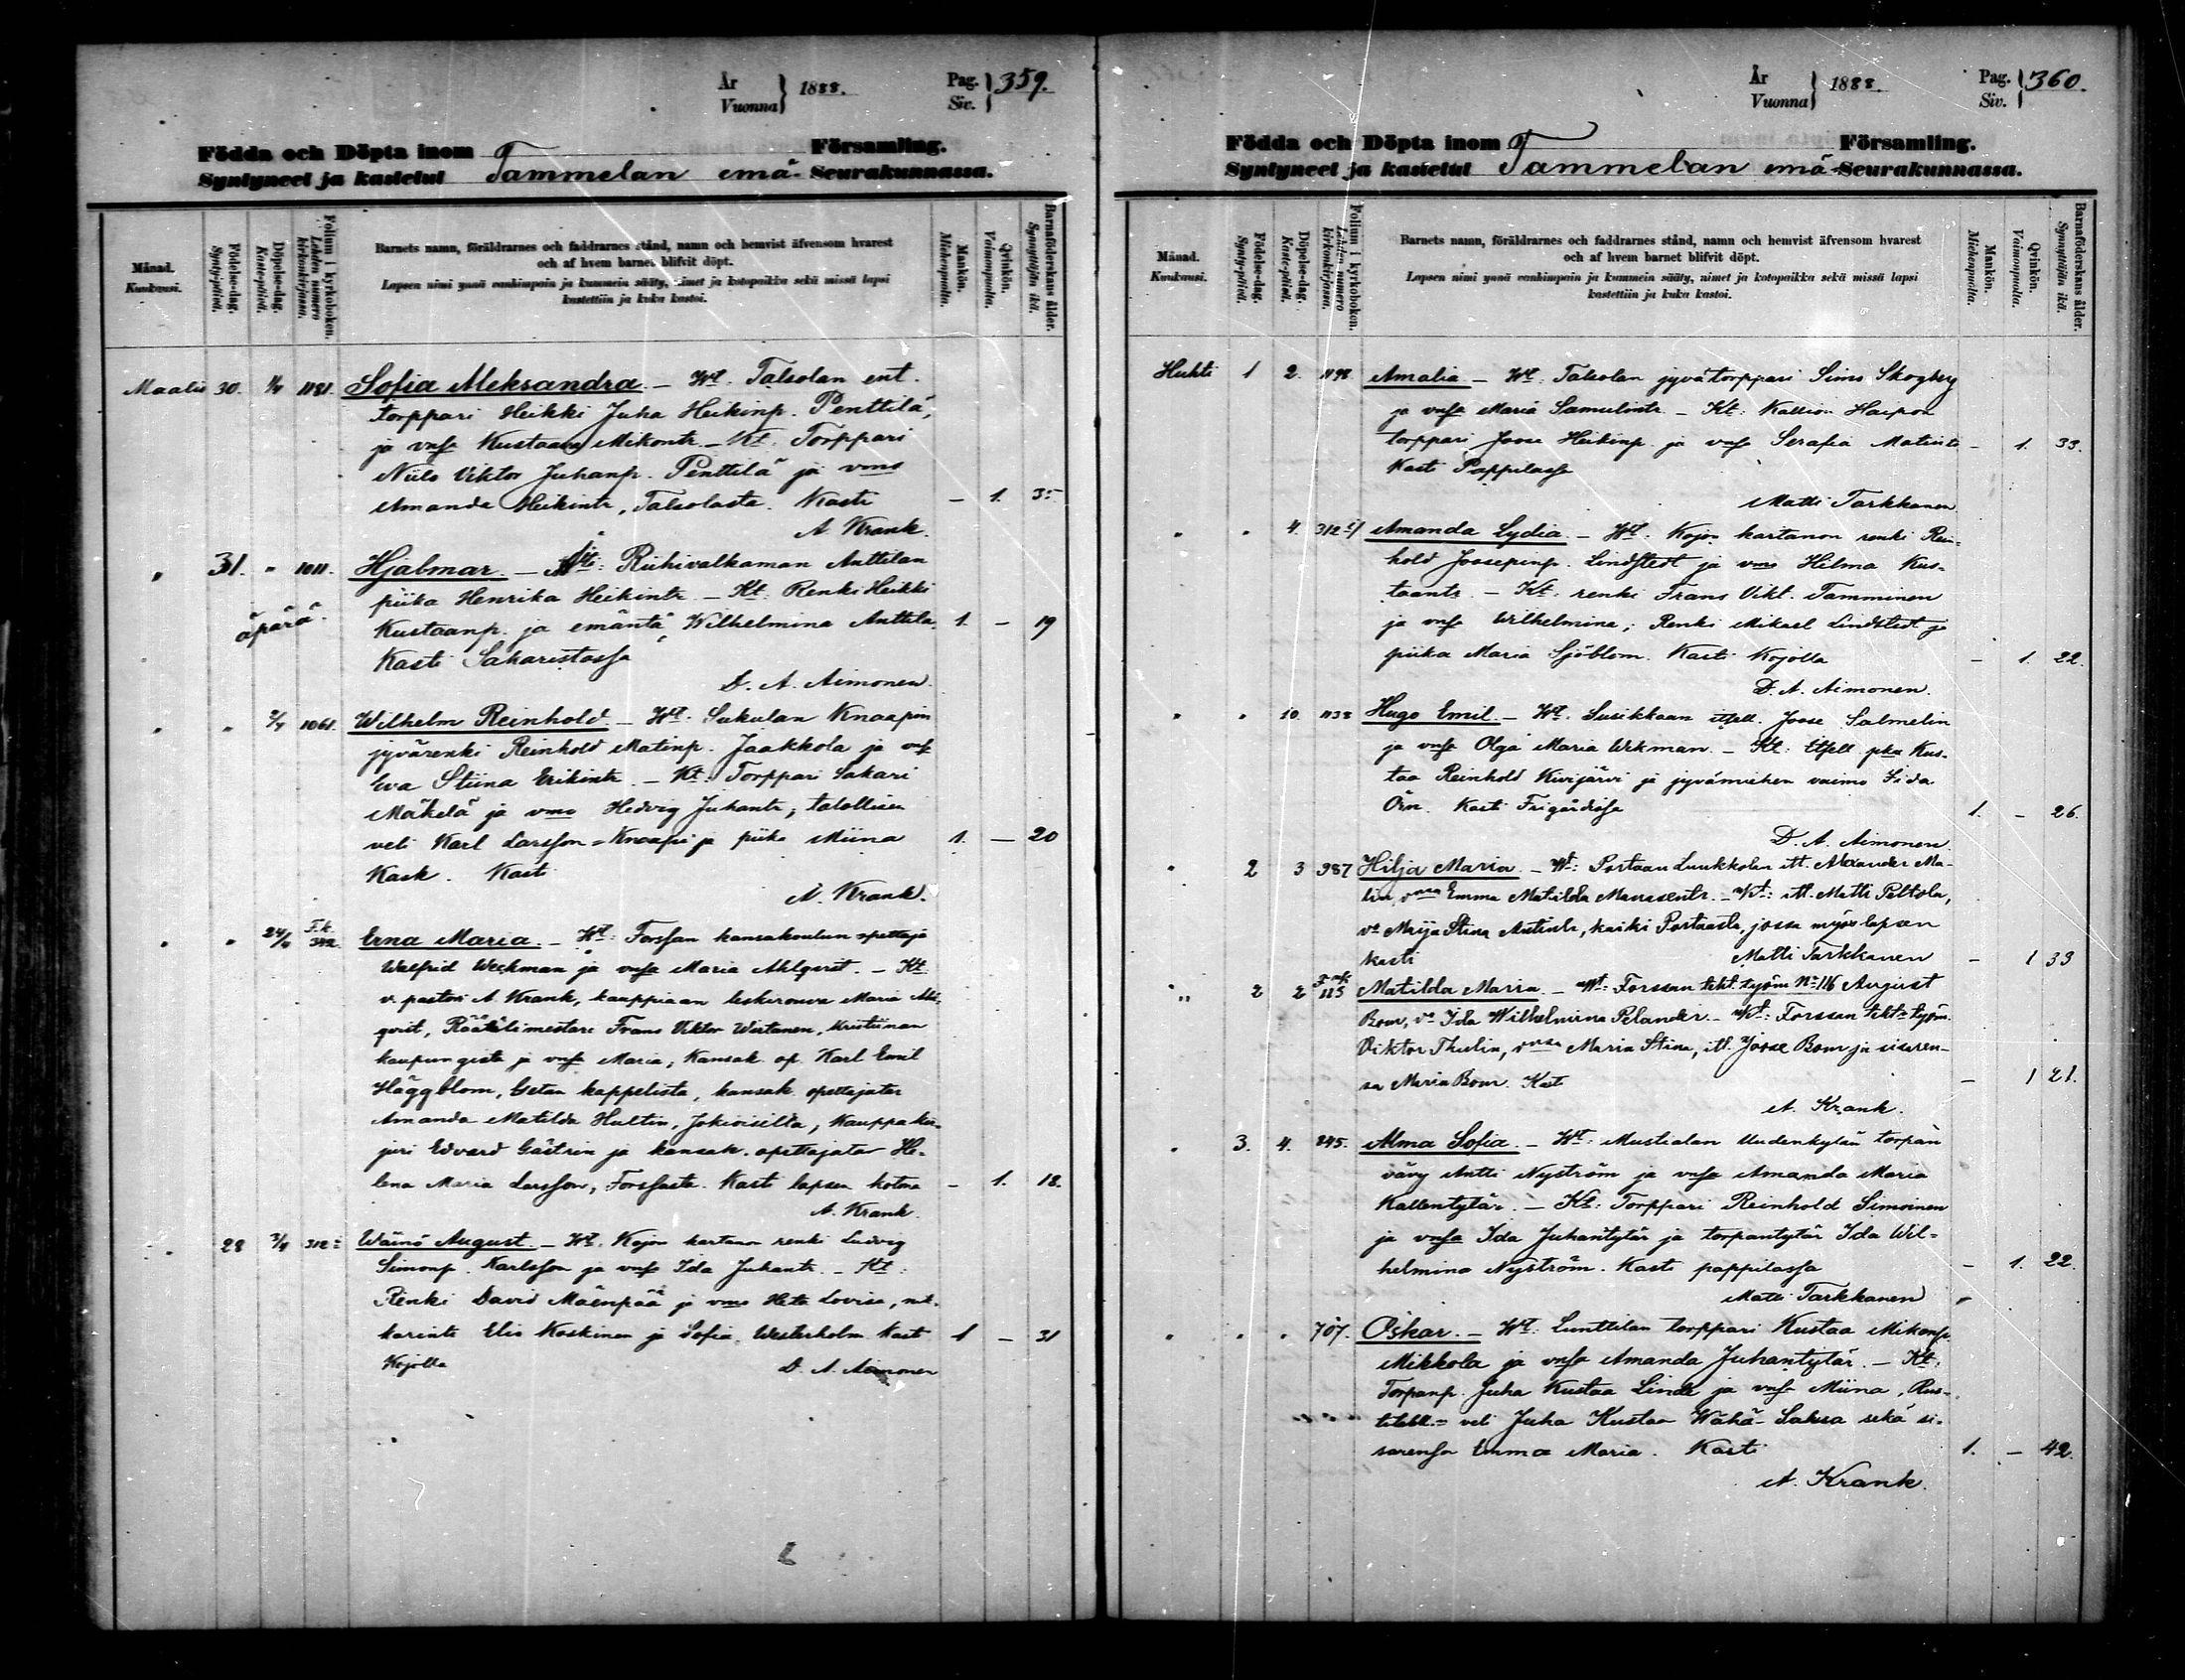 År
Vuonna } 1888.
Pag.
Siv. } 359.
Födda och Döpta inom Församling.
Syntyneet ja kastetut Tammelan emä- Seurakunnassa.
Månad.
Kuukausi.
Födelse-dag.
Synty-päivä.
Döpelse-dag.
Kaste-päivä.
Folium i kyrkoboken.
Lehden numero kirkonkirjassa.
Barnets namn, föräldrarnes och faddrarnes stånd, namn och hemvist äfvensom hvarest
och af hvem barnet blifvit döpt.
Lapsen nimi ynnä vanhimpain ja kummein sääty, nimet ja kotopaikka sekä missä lapsi
kastettiin ja kuka kastoi.
Mankön.
Miehenpuolta.
Qvinkön.
Vaimonpuolta.
Barnaföderskans ålder.
Synnyttäjän ikä.
Maalis 30. 1/4 1181. Sofia Aleksandra. – Wt. Talsolan ent.
torppari Heikki Juha Heikinp. Penttilä,
ja vnsa Kustaava Mikontr. – Kt. Torppari
Niilo Viktor Juhanp. Penttilä ja vmo
Amanda Heikintr, Talsolasta. Kasti – 1. 35
A. Krank.
" 31. " 1011. Hjalmar. – Äiti: Riihivalkaman Anttilan
piika Henrika Heikintr. – Kt. Renki Heikki
äpärä. Kustaanp. ja emäntä Wilhelmina Anttila. 1. – 19
Kasti Saharistossa
D. A. Aimonen.
" " 2/4 1061. Wilhelm Reinhold. – Wt. Sukulan Knaapin
jyvärenki Reinhold Matinp. Jaakkola ja vnsa
Eva Stiina Erikintr. – Kt. Torppari Sakari
Mäkelä ja vmo Hedvig Juhantr, talollisen
veli Karl Larsson-Knaapi ja piika Miina 1. – 20
Kask. Kasti
A. Krank.
" " 24/4 F.k. 342. Erna Maria. – Wt. Forssan kansakoulun opettaja
Walfrid Weckman ja vnsa Maria Ahlqvist. – Kt.
v. pastori A. Krank, kauppiaan leskirouva Maria Ahl-
qvist, Räätälimestari Frans Viktor Wirtanen, Kristiinan
kaupungista ja vnsa Maria, Kansak. op. Karl Emil
Häggblom, Getan kappelista, kansak. opettajatar
Amanda Matilda Hultin, Jokioisilta, Kauppakir-
juri Edvard Gästrin ja kansak. opettajatar He-
lena Maria Larsson, Forssasta. Kasti lapsen kotona – 1. 18.
A. Krank.
" 28 3/4 312 Wäinö August. – Wt. Kojon kartanon renki Ludvig
Simonp. Karlsson ja vnsa Ida Juhantr. – Kt.
Renki David Mäenpää ja vmo Heta Lovisa,
Elis Koskinen ja Sofia Westerholm Kasti 1 – 31
Kojolla D. A. Aimonen
År
Vuonna } 1888.
Pag.
Siv. } 360.
Födda och Döpta inom Församling.
Syntyneet ja kastetut Tammelan emä-Seurakunnassa.
Månad.
Kuukausi.
Födelse-dag.
Synty-päivä.
Döpelse-dag.
Kaste-päivä.
Folium i kyrkoboken.
Lehden numero kirkonkirjassa.
Barnets namn, föräldrarnes och faddrarnes stånd, namn och hemvist äfvensom hvarest
och af hvem barnet blifvit döpt.
Lapsen nimi ynnä vanhimpain ja kummein sääty, nimet ja kotopaikka sekä missä lapsi
kastettiin ja kuka kastoi.
Mankön.
Miehenpuolta.
Qvinkön.
Vaimonpuolta.
Barnaföderskans ålder.
Synnyttäjän ikä.
Huhti 1 2. 1198 Amalia – Wt. Talsolan jyvätorppari Simo Skogberg
ja vnsa Maria Samulintr. – Kt. Kallion Haipon
torppari Joose Heikinp. ja vnsa Serafia Matintr – 1. 33.
Kasti Pappilassa
Matti Tarkkanen
" " 4. 312 Amanda Lydia. – Wt. Kojon kartanon renki Rein-
hold Joosepinp. Lindstedt ja vmo Hilma Kus-
taantr. – Kt. renki Frans Vikt. Tamminen
ja vnsa Wilhelmina; Renki Mikael Lindstedt ja
piika Maria Sjöblom. Kasti Kojolla – 1. 22.
D. A. Aimonen.
" " 10. 1138 Hugo Emil. – Wt. Susikkaan itsell. Joose Salmelin
ja vnsa Olga Maria Wikman. – Kt. Itsell. pka Kus-
taa Reinhold Kivijärvi ja jyvämiehen vaimo Fida
Örn. Kasti Frigårdissa 1. – 26.
D. A. Aimonen
" 2 3 987 Hilja Maria. – Wt: Portaan Luukkolan itl. Alexander Ma-
lin, vmsa Emma Matilda Manasentr. – Kt: itl. Matti Peltola,
vo Maija Stina Antintr, kaikki Portaasta, jossa myös lapsen
kasti Matti Tarkkanen – 1 33
" 2 2 115 Matilda Maria. – Wt: Forssan teht. työm. No 116 August
Bom, vo Ida Wilhelmina Pelander. – Kt: Forssan teht. työm.
Viktor Thulin, vmsa Maria Stina, itl. Joose Bom ja sisaren-
sa Maria Bom. Kasti – 1 21.
A. Krank.
" 3. 4. 245. Alma Sofia. – Wt. Mustialan Uudenkylän torpan
vävy Antti Nyström ja vnsa Amanda Maria
Kallentytär. – Kt. Torppari Reinhold Simoinen
ja vnsa Ida Juhantytär ja torpantytär Ida Wil-
helmina Nyström. Kasti pappilassa – 1. 22.
Matti Tarkkanen
" " " 707. Oskar. – Wt. Lunttilan torppari Kustaa Mikonp.
Mikkola ja vnsa Amanda Juhantytär. – Kt.
Torpanp. Juha Kustaa Linde ja vnsa Miina, Rus-
titall. veli Juha Kustaa Wähä-Saksa sekä si-
sarensa Emma Maria. Kasti 1. – 42.
A. Krank.